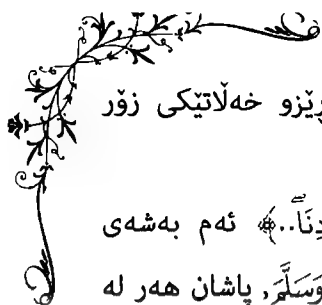 ڕێزو خەڵاتێکی زۆر
دِنَا..﴾ ئەم بەشەی
وَسَلَّمَ, پاشان هەر لە